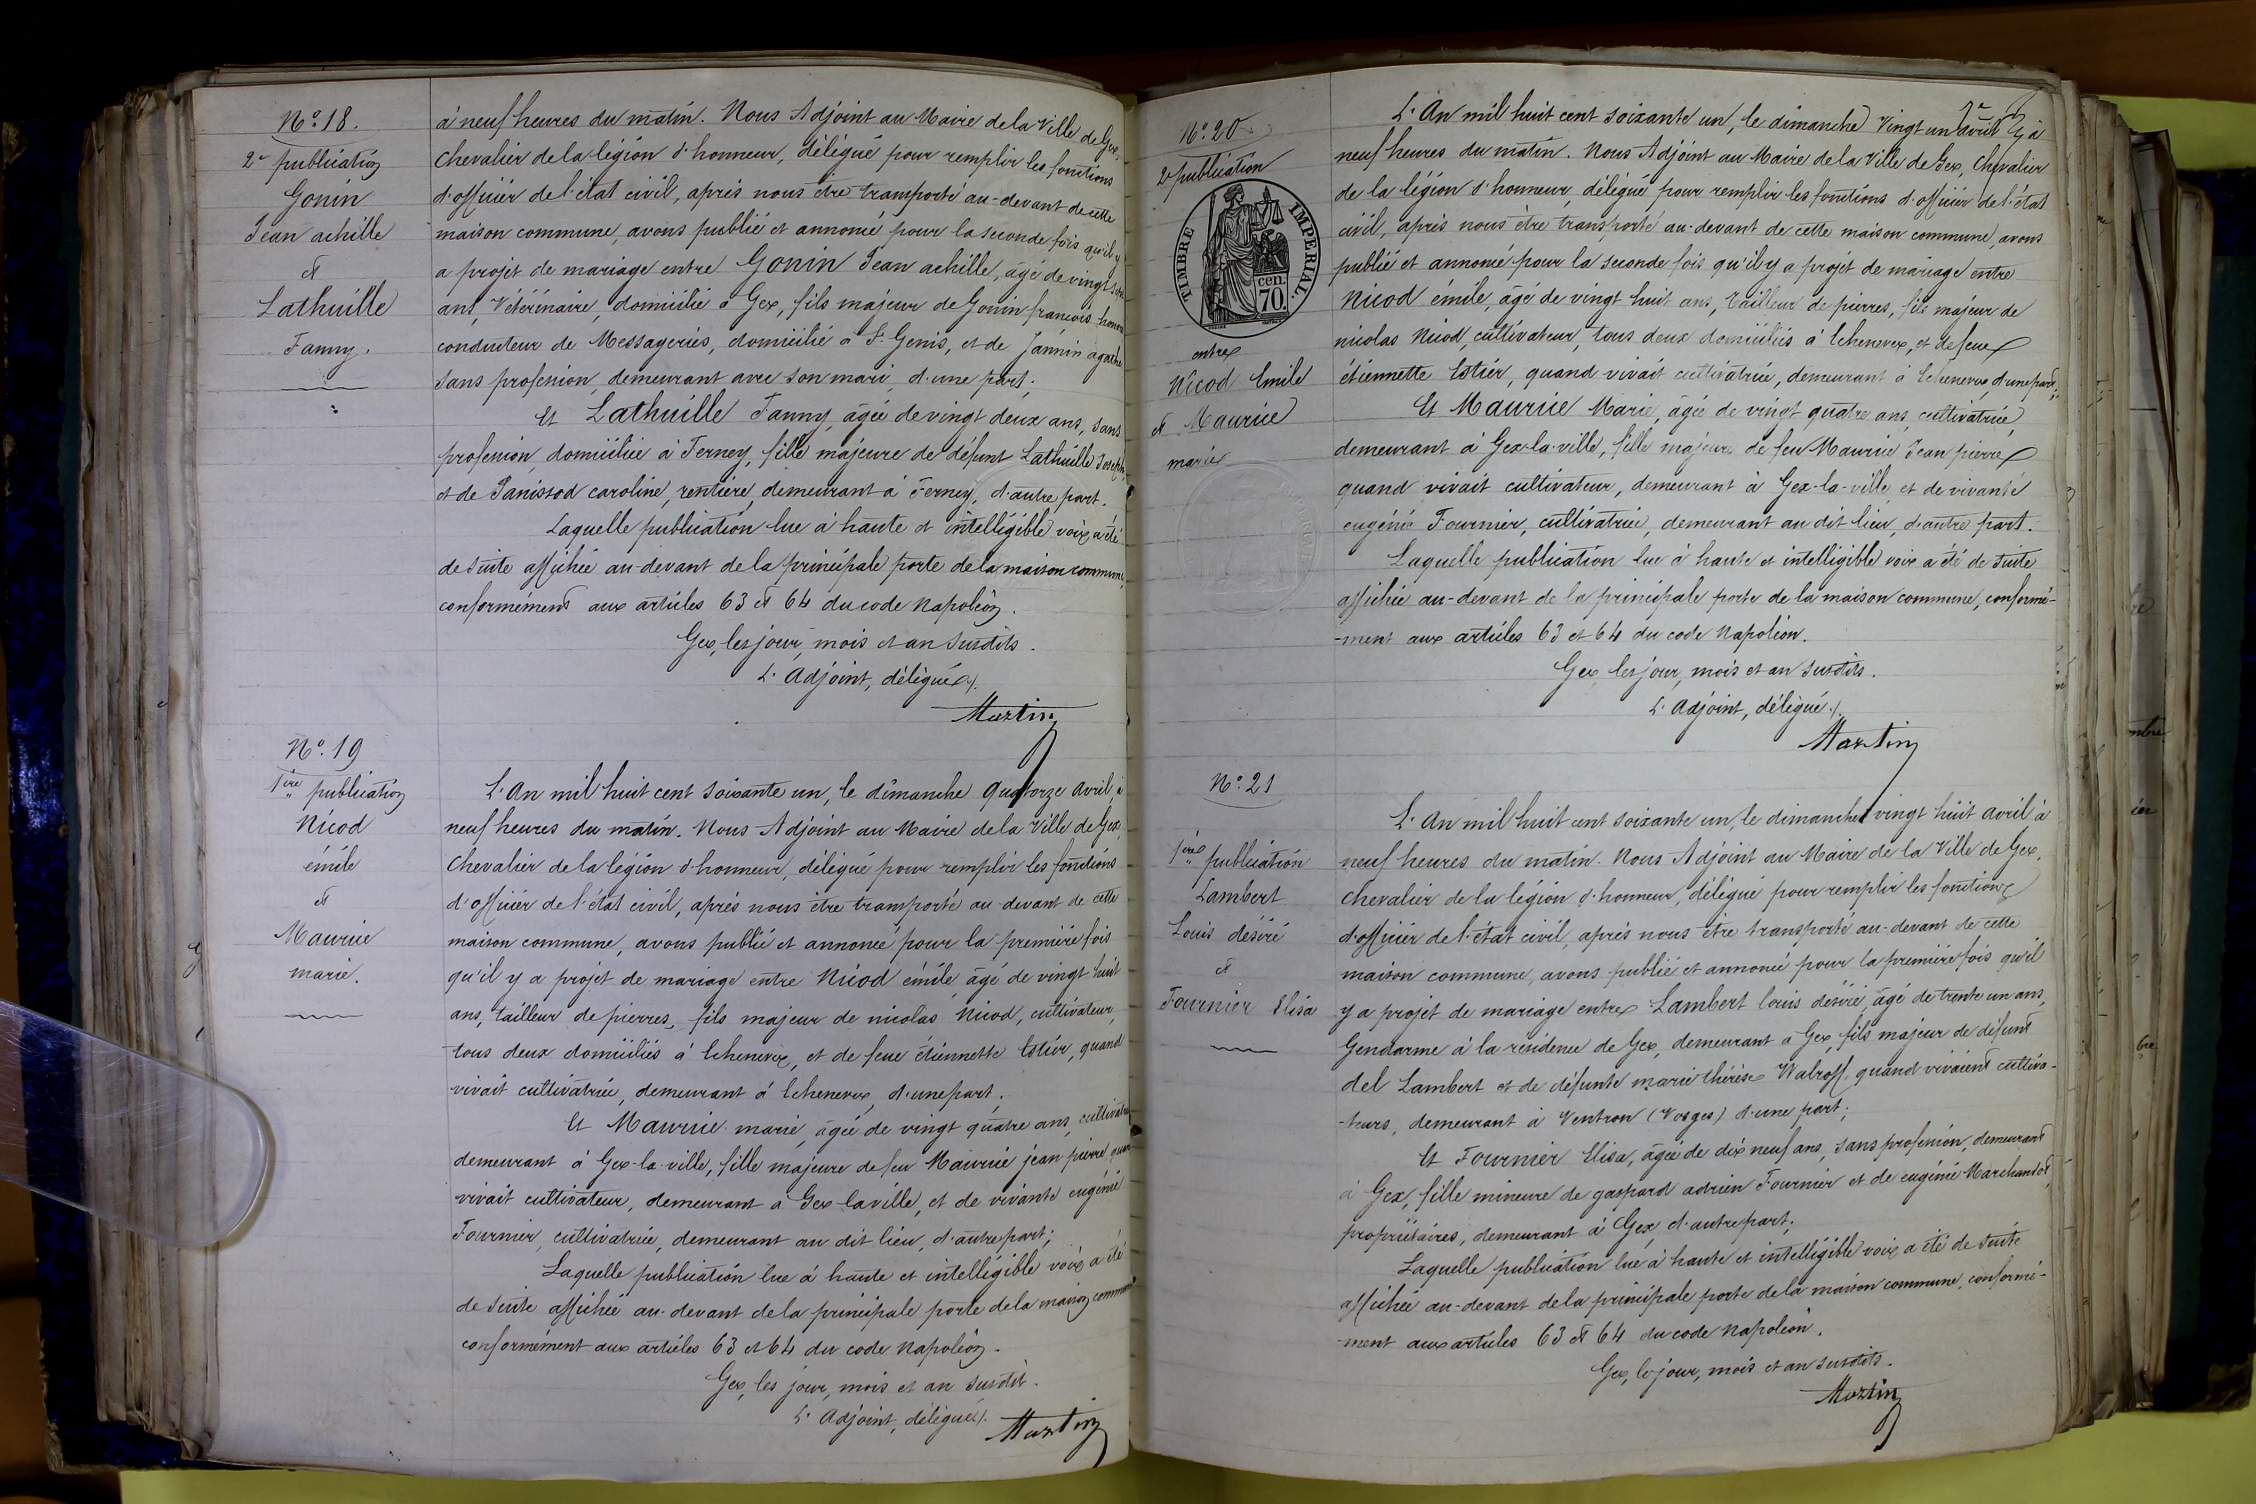 N° 18.
2e publication
Gonin
Jean achille
et
Lathuille
Fanny.
à neuf heures du matin. Nous Adjoint au Maire de la Ville de Gex,
chevalier de la légion d'honneur, délégué pour remplir les fonctions
d'officier de l'état civil, après nous être transporté au-devant de cette
maison commune, avons publié et annoncé pour la seconde fois qu'il y
a projet de mariage entre Gonin Jean achille, âgé de vingt
ans, Vétérinaire, domicilié à Gex, fils majeur de Gonin françois
conducteur de Messageries, domicilié à St Genis, et de Jannin agathe
sans profession, demeurant avec son mari, d'une part;
Et Lathuille Fanny, âgée de vingt deux ans, sans
profession, domiciliée à Ferney, fille majeure de défunt Lathuille Joseph,
et de Panissod caroline, rentière, demeurant à Ferney, d'autre part.
Laquelle publication lue à haute et intelligible voix a été
de suite affichée au-devant de la principale porte de la maison commune,
conformément aux articles 63 et 64 du code Napoléon.
Gex, les jour, mois et an susdits.
L'Adjoint, délégué.
Martin
N° 19
1ère publication
Nicod
émile
et
Maurice
marie.
L'An mil huit cent soixante un, le dimanche quatorze avril, à
neuf heures du matin. Nous Adjoint au Maire de la Ville de Gex,
Chevalier de la légion d'honneur, délégué pour remplir les fonctions
d'officier de l'état civil, après nous être transporté au-devant de cette
maison commune, avons publié et annoncé pour la première fois
qu'il y a projet de mariage entre Nicod émile, âgé de vingt-huit
ans, tailleur de pierres, fils majeur de nicolas Nicod, cultivateur,
tous deux domiciliés à Echenevex, et de feue étiennette Estier, quand
vivait cultivatrice, demeurant à Echenevex, d'une part;
Et Maurice marie, âgée de vingt quatre ans, cultivatrice
demeurant à Gex-la-ville, fille majeure de feu Maurice jean pierre quand
vivait cultivateur, demeurant à Gex-la ville, et de vivante eugénie
Fournier, cultivatrice, demeurant au dit lieu, d'autre part;
Laquelle publication lue à haute et intelligible voix a été
de suite affichée au-devant de la principale porte de la maison commune
conformément aux articles 63 et 64 du code Napoléon.
Gex, les jour, mois et an susdit.
L'Adjoint, délégué.
Martin
N° 20
2e publication
TIMBRE IMPÉRIAL.
cen.
70.
entre
Nicod Emile
et Maurice
marie
L'An mil huit cent soixante un, le dimanche Vingt un avril à
neuf heures du matin. Nous Adjoint au Maire de la Ville de Gex, Chevalier
de la légion d'honneur, délégué pour remplir les fonctions d'officier de l'état
civil, après nous être transporté au-devant de cette maison commune, avons
publié et annoncé pour la seconde fois qu'il y a projet de mariage entre
Nicod émile, âgé de vingt huit ans, tailleur de pierres, fils majeur de
nicolas Nicod, cultivateur, tous deux domiciliés à Echenevex, et de feue
étiennette Estier, quand vivait cultivatrice, demeurant à Echenevex, d'une part;
Et Maurice Marie, âgée de vingt quatre ans, cultivatrice,
demeurant à Gex-la-ville, fille majeure de feu Maurice Jean pierre
quand vivait cultivateur, demeurant à Gex-la-ville, et de vivante
eugénie Fournier, cultivatrice, demeurant au dit lieu, d'autre part.
Laquelle publication lue à haute et intelligible voix a été de suite
affichée au-devant de la principale porte de la maison commune, conformé-
-ment aux articles 63 et 64 du code Napoléon.
Gex, les jour, mois et an susdits.
L'Adjoint, délégué.
Martin
N° 21
1ère publication
Lambert
Louis désiré
et
Fournier Elisa
L'An mil huit cent soixante un, le dimanche vingt huit avril à
neuf heures du matin. Nous Adjoint au Maire de la Ville de Gex,
chevalier de la légion d'honneur, délégué pour remplir les fonctions
d'officier de l'état civil, après nous être transporté au-devant de cette
maison commune, avons publié et annoncé pour la première fois qu'il
y a projet de mariage entre Lambert louis désiré, âgé de trente un ans,
Gendarme à la résidence de Gex, demeurant à Gex, fils majeur de défunt
del Lambert et de défunte marie thérèse Walroff, quand vivaient cultiva-
-teurs, demeurant à Ventron (Vosges) d'une part;
Et Fournier Elisa, âgée de dix neuf ans, sans profession, demeurant
à Gex, fille mineure de gaspard adrien Fournier et de eugénie Marchandet,
propriétaires, demeurant à Gex, d'autre part;
Laquelle publication lue à haute et intelligible voix a été de suite
affichée au-devant de la principale porte de la maison commune, conformé-
-ment aux articles 63 et 64 du code Napoléon.
Gex, le jour, mois et an susdits.
Martin